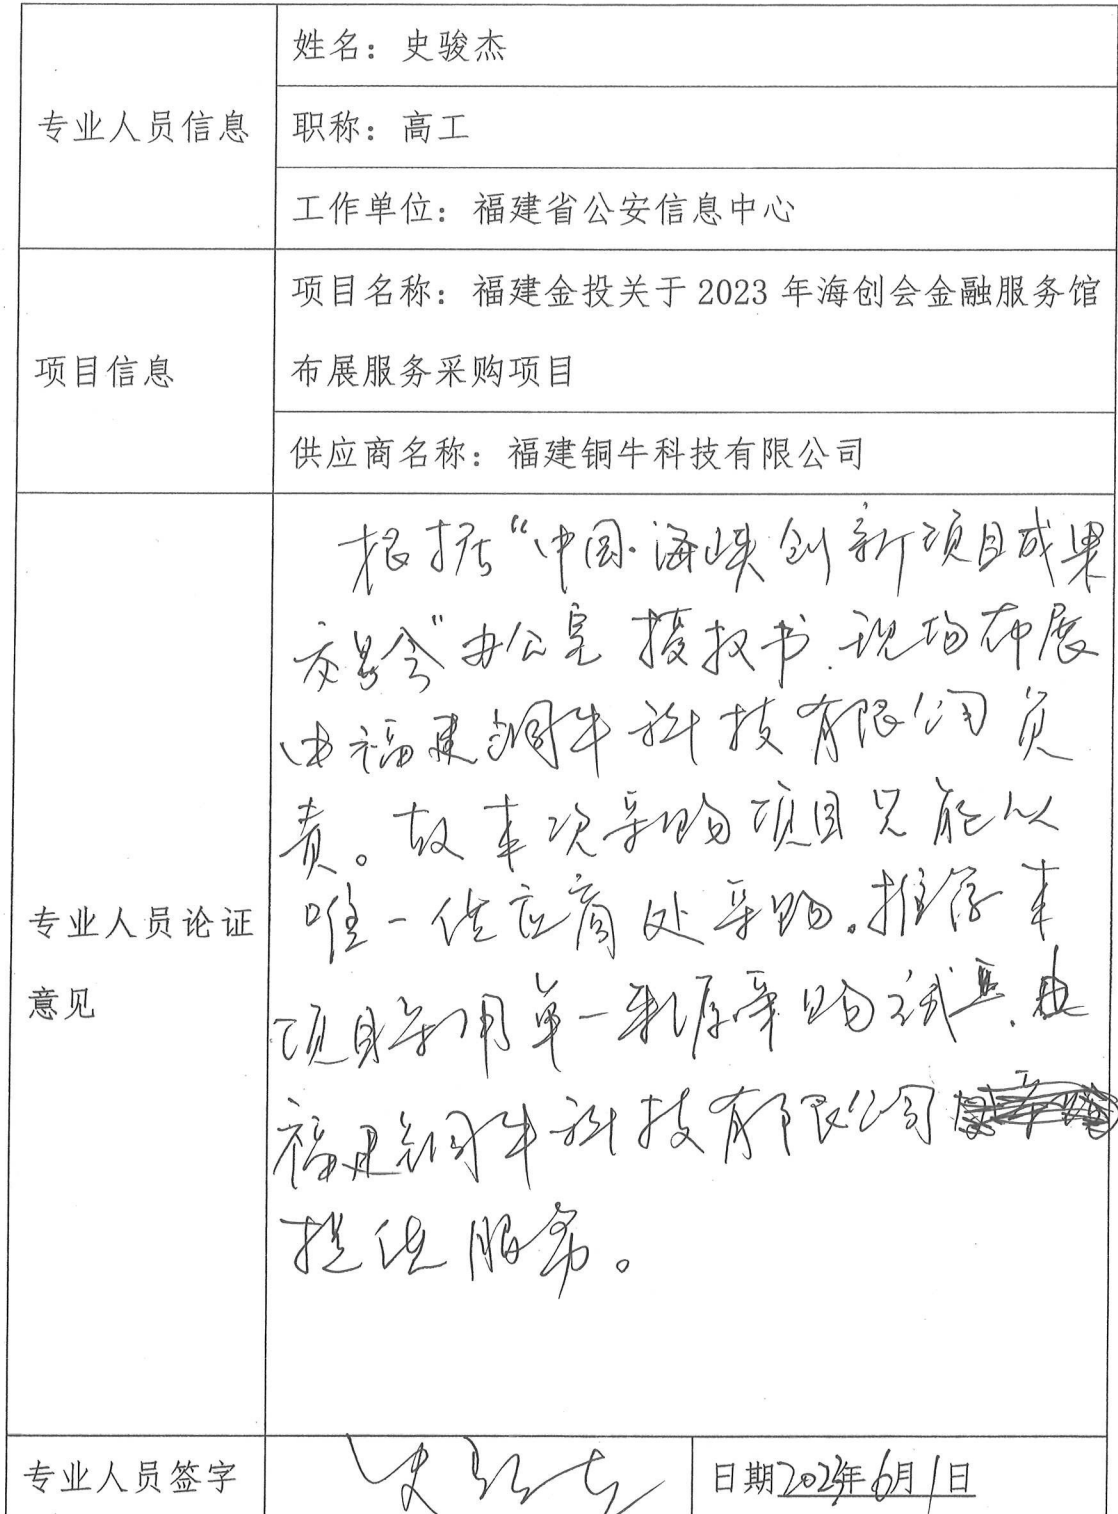 专业人员信息
姓名：史骏杰
职称：高工
工作单位：福建省公安信息中心
项目信息
项目名称：福建金投关于2023年海创会金融服务馆
布展服务采购项目
供应商名称：福建铜牛科技有限公司
专业人员论证
意见
根据“中国·海峡创新项目成果
交易会”办公室授权书，现场布展
由福建铜牛科技有限公司负
责。故本次采购项目只能从
唯一供应商处采购。推荐本
项目采用单一来源采购方式，由
福建铜牛科技有限公司
提供服务。
专业人员签字
史骏杰
日期2023年6月1日